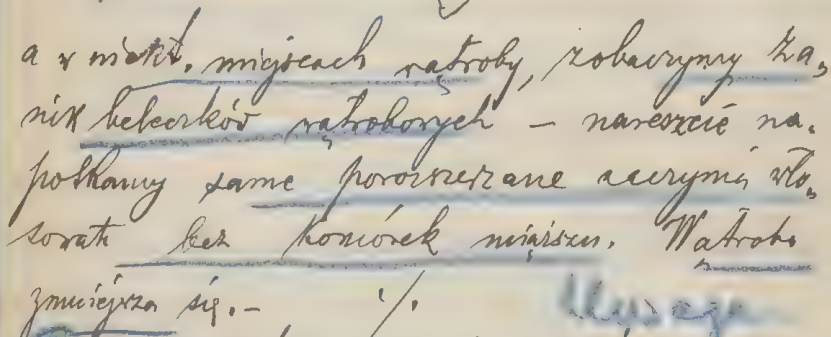 a w niekt. miejscach wątroby, zobaczymy za„
nik beleczków wątrobowych — nareszcie na„
potkamy same porozszerzane naczynia wło„
sowate bez komórek miąższu. Wątroba
zmniejsza się. — ·/.